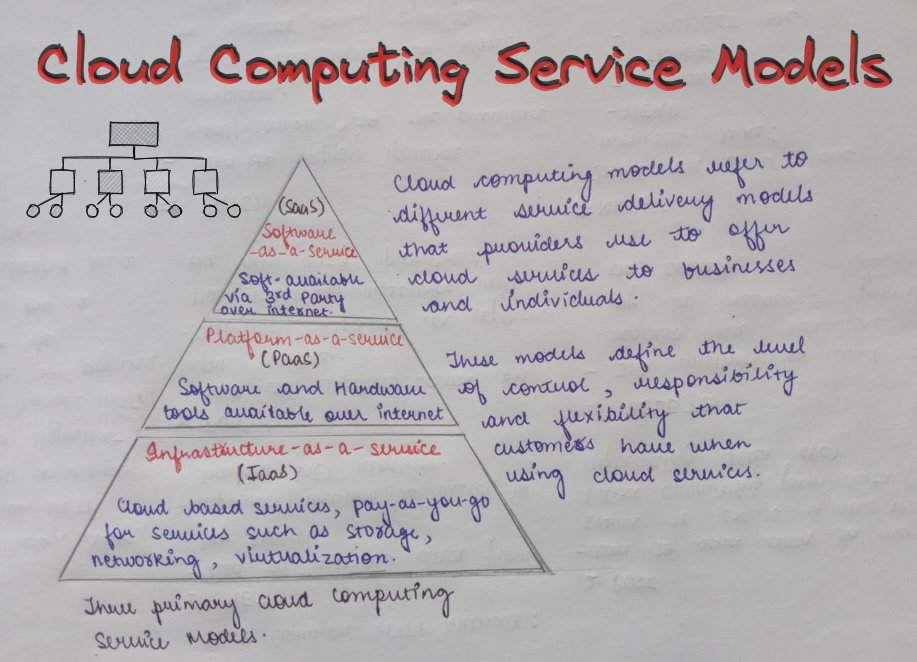 Cloud Computing Service Models
(SaaS)
Software
-as-a-Service
Soft-available
via 3rd Party
over internet.
Platform-as-a-service
(PaaS)
Software and Hardware
tools available over internet
Infrastructure-as-a-service
(IaaS)
Cloud based services, pay-as-you-go
for services such as storage,
networking, virtualization.
Three primary cloud computing
Service Models.
Cloud computing models refer to
different service delivery models
that providers use to offer
cloud services to businesses
and individuals.
These models define the level
of control, responsibility
and flexibility that
customers have when
using cloud services.